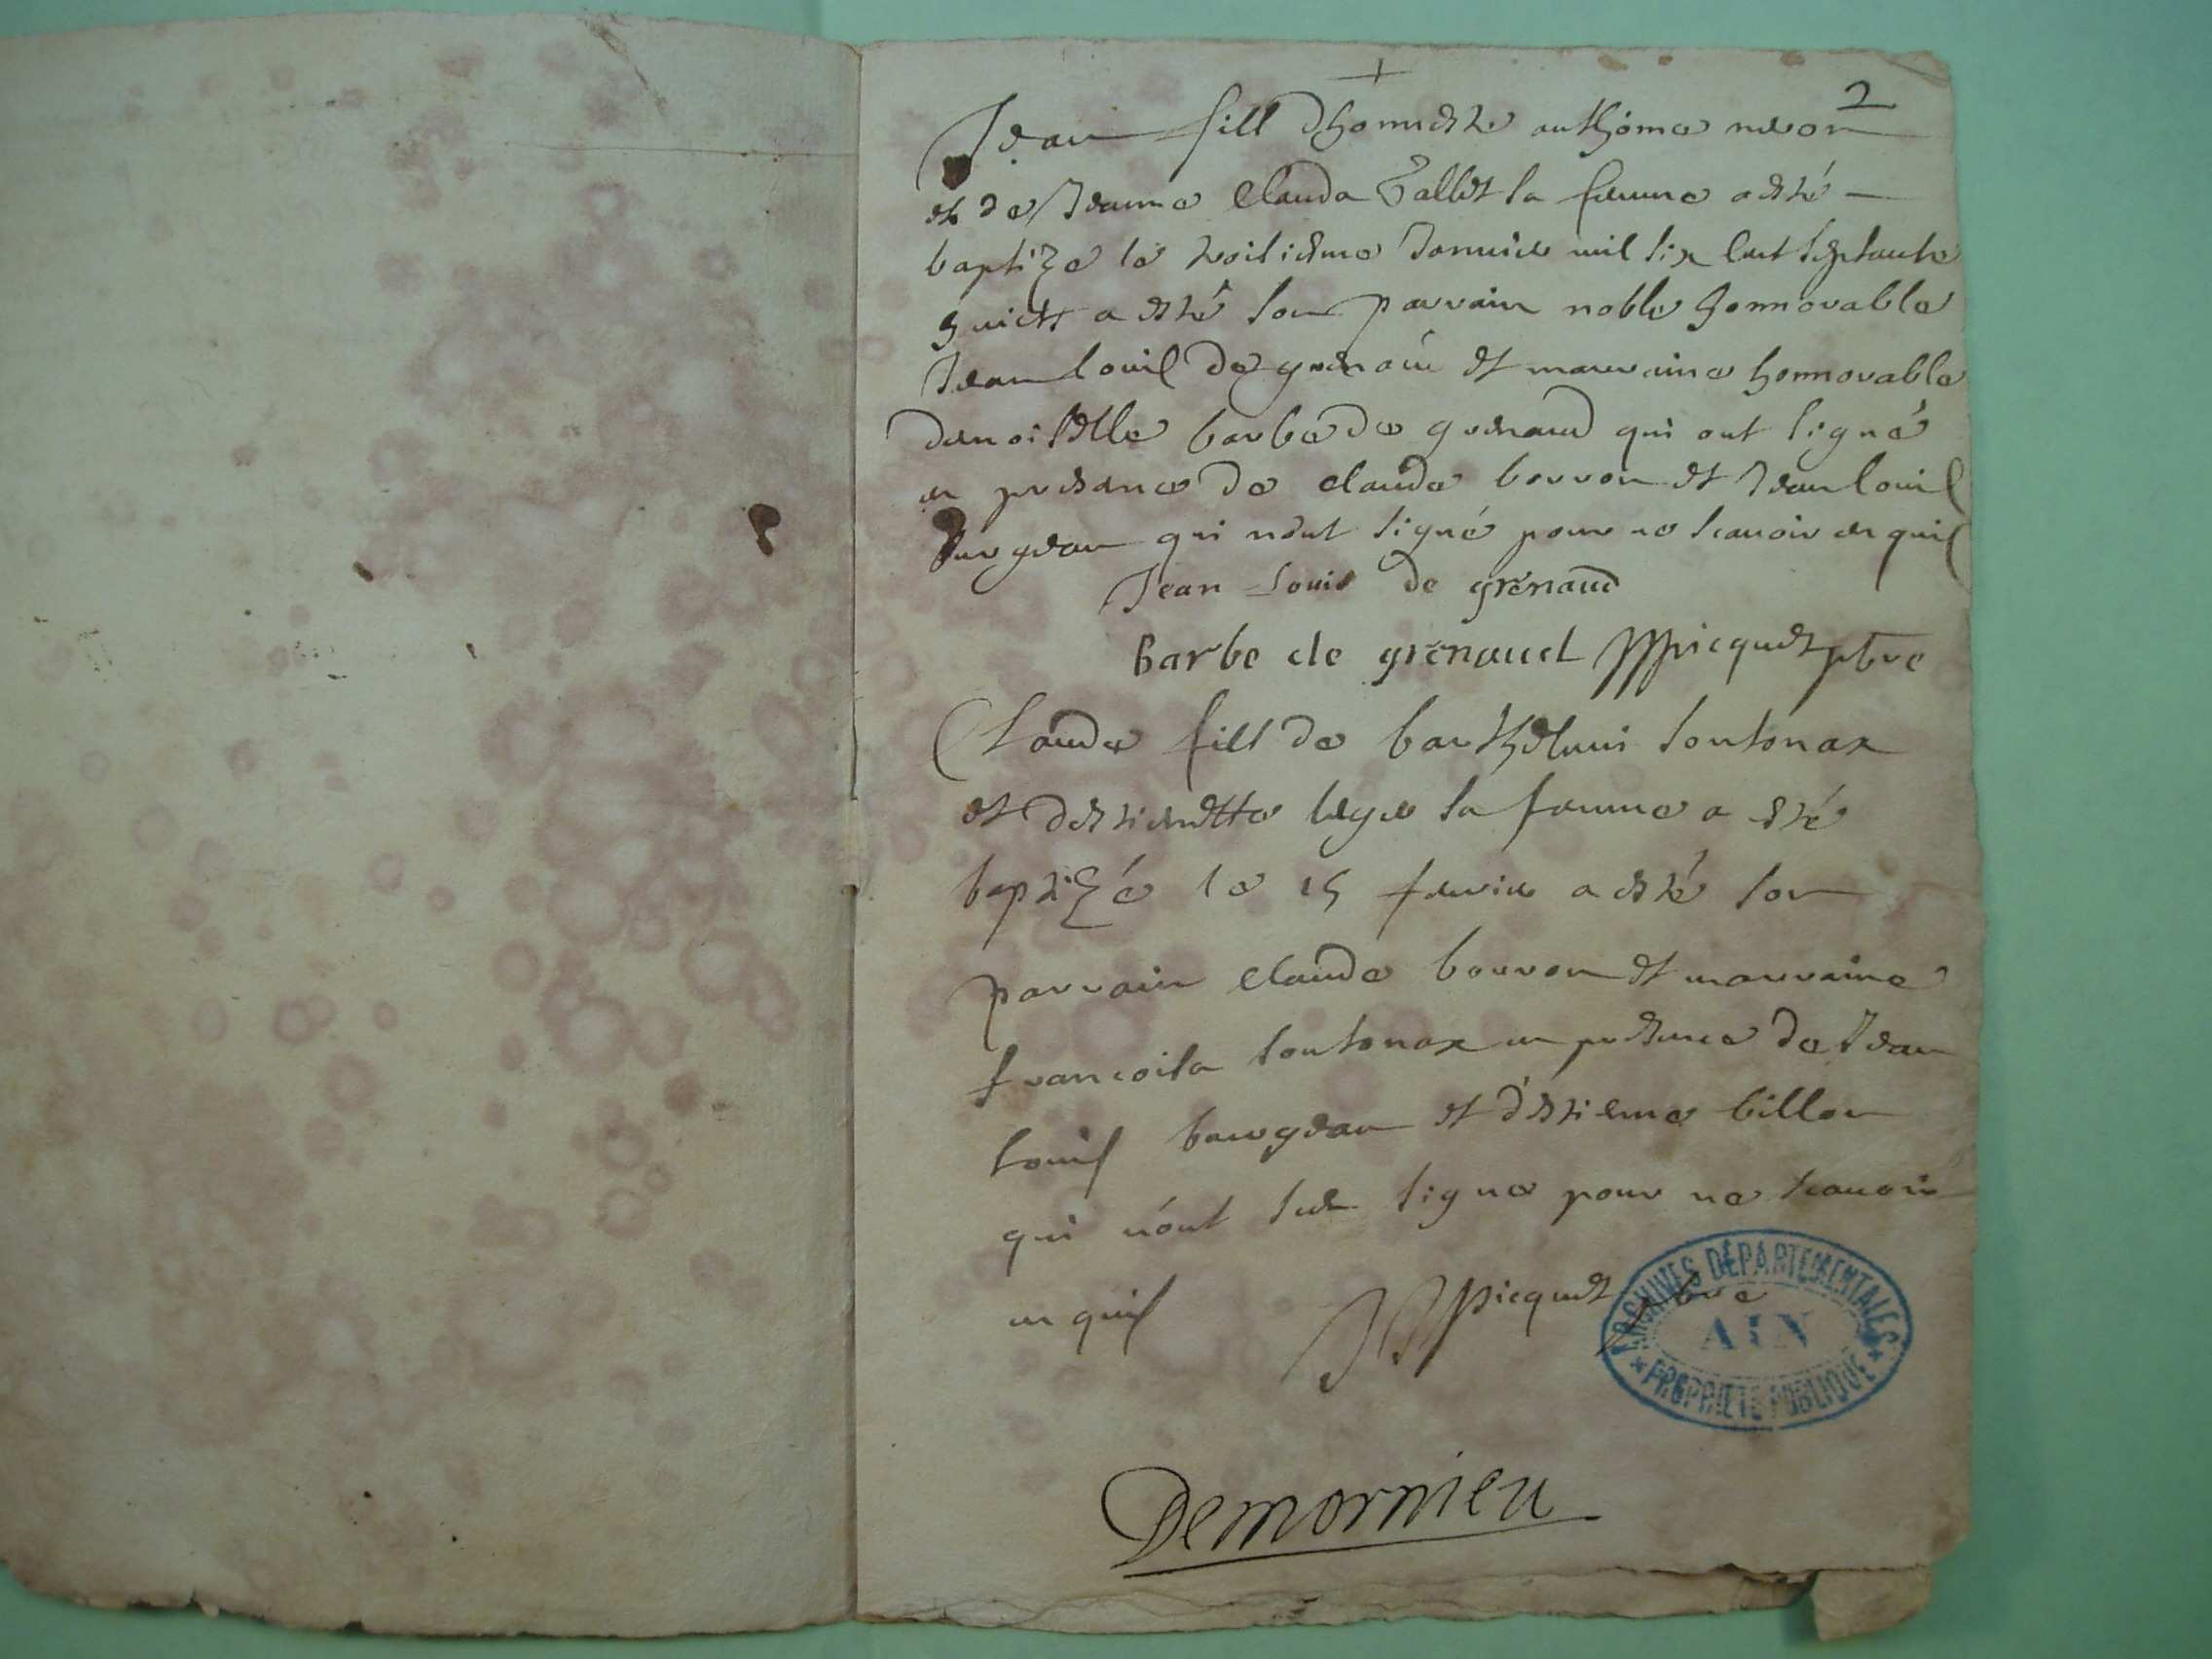 2
Jean fils dhonneste anthoine
et de Jeanne Clauda sa femme a esté
baptizé le troisiesme Janvier mil six cent septante
huict a esté son parrain noble honnorable
Jean louis de grenaud et marraine honnorable
damoiselle barbe de grenaud qui ont signé
en presence de claude borron et Jean louis
qui nont signé pour ne scauoir enquis
Jean Louis de grenaud
Barbe de grenaud Picquet pbre
Claude fils de barthelemi toutonax
et destiennette sa femme a esté
baptizé le 15 feurier a esté son
parrain claude borron et marraine
francoisa toutonax en presence de Jean
louis bourgean et destienne billon
qui n'ont sceu signer pour ne scauoir
enquis Picquet pbre
ARCHIVES DÉPARTEMENTALES
AIN
PROPRIÉTÉ PUBLIQUE
Demornieu